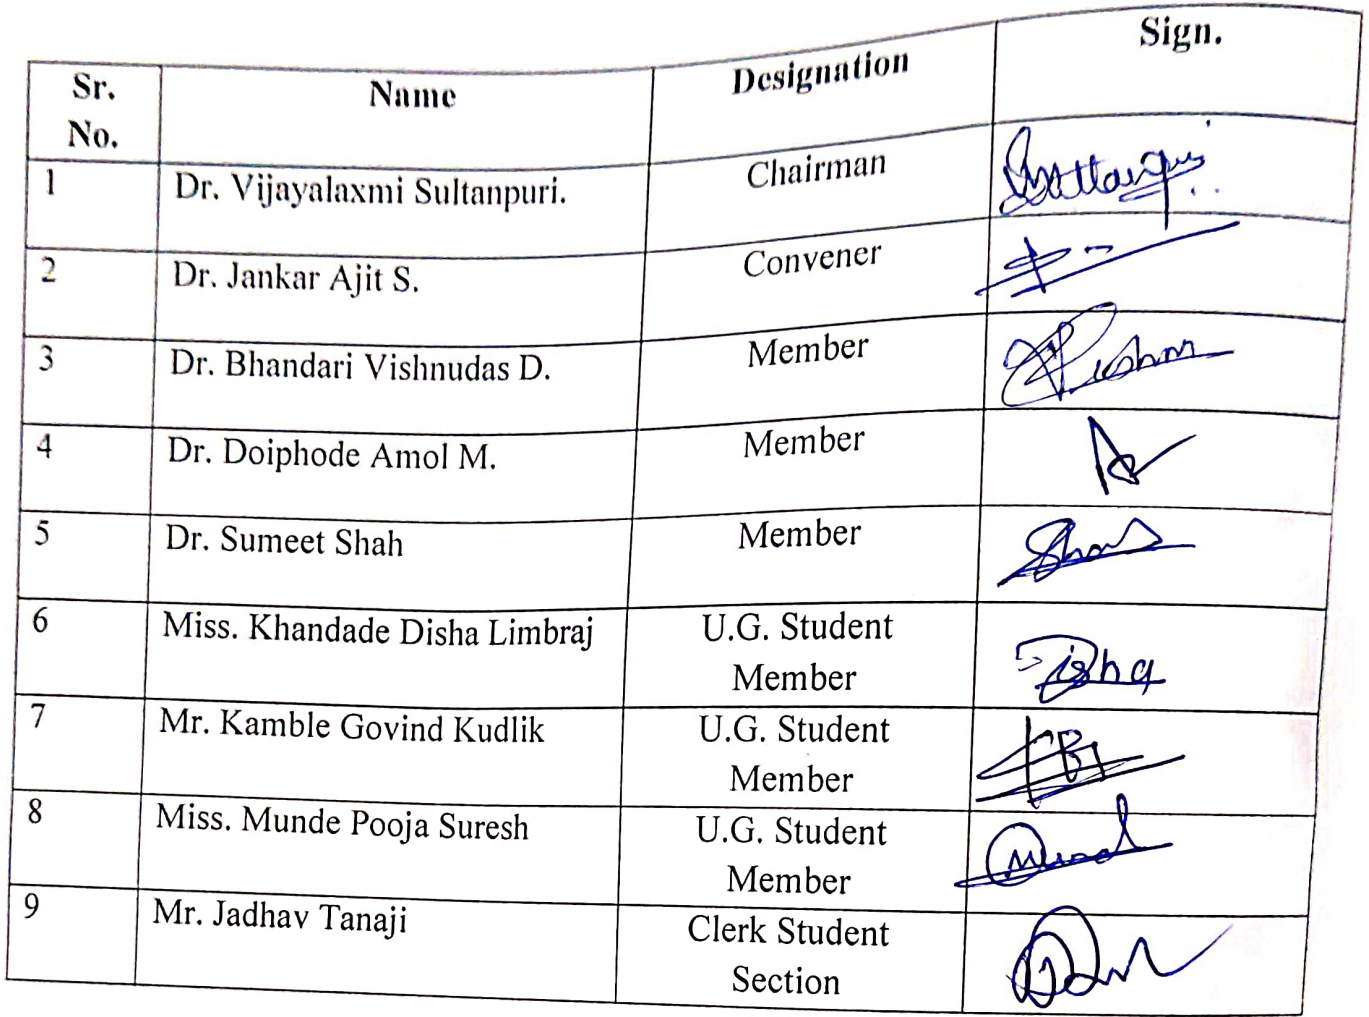 Sr. No. Name Designation Sign.
1 Dr. Vijayalaxmi Sultanpuri. Chairman
2 Dr. Jankar Ajit S. Convener
3 Dr. Bhandari Vishnudas D. Member
4 Dr. Doiphode Amol M. Member
5 Dr. Sumeet Shah Member
6 Miss. Khandade Disha Limbraj U.G. Student
Member Disha
7 Mr. Kamble Govind Kudlik U.G. Student
Member
8 Miss. Munde Pooja Suresh U.G. Student
Member
9 Mr. Jadhav Tanaji Clerk Student
Section